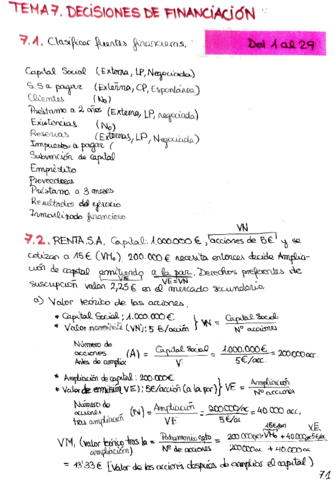 TEMA 7. DECISIONES DE FINANCIACIÓN
7.1. Clasificar fuentes financieras.
Del 1 al 29
Capital Social (Externa, LP, Negociada)
S.S a pagar (Externa, CP, Espontánea)
Clientes (No)
Préstamo a 2 años (Externa, LP, negociada)
Existencias (No)
Reservas (Externas, LP, Negociada)
Impuestos a pagar (
Subvención de capital
Empréstito
Proveedores
Préstamo a 3 meses
Resultados del ejercicio
Inmovilizado financiero
VN
7.2. RENTA,S.A. Capital: 1.000.000 €, acciones de 5€ y se
cotizan a 15€ (VM₀). 200.000 € necesita entonces decide Amplia-
ción de capital emitiendo a la par. Derechos preferentes de
VE VE=VN
suscripción valen 2,25€ en el mercado secundario.
a) Valor teórico de las acciones.
* Capital Social: 1.000.000€
* Valor nominal (VN): 5 €/acción } VN = Capital Social / Nº acciones
Número de acciones Antes de ampliar (A) = Capital Social / V = 1.000.000€ / 5€/acc = 200.000 acc.
* Ampliación de capital: 200.000€
* Valor de emisión (VE): 5€/acción (a la par) } VE = Ampliación / Nº acciones
Número de acciones tras ampliación (N) = Ampliación / VE = 200.000/€ / 5€/acc = 40.000 acc.
VM₁ (valor teórico tras la ampliación) = Patrimonio neto / Nº de acciones = 200.000 · VM₀ + 40.000 · 5€/acc / 200.000 + 40.000 acc
= 13'33 € [Valor de las acciones después de ampliar el capital]
7.1